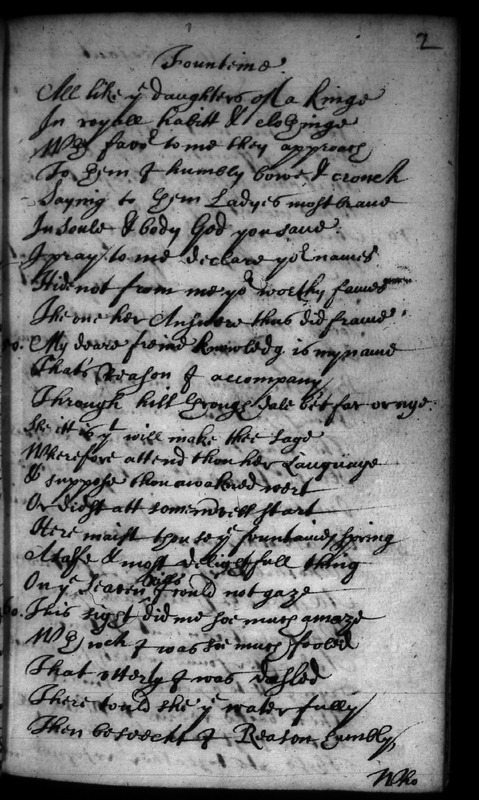 2
Founteine
All like yͤ daughters off a Kinge
In royall habitt & clothinge
Wth favoʳ to me they approach
To them I humbly bowe & crouch
Saying to them Ladyes most brave
In soule & body God you save
I pray to me declare yoʳ names
Hide not from me yoʳ worthy fames
The one her Answere thus did frame
My deare freind knowledg is my name
That's Reason I accompany
Through hill through dale bee't far or nye
She itt is yᵗ will make thee sage
Wherefore attend thou her Language
& suppose thou awakened wert
Or didst att some start
Here maist thou see yͤ fountaines spring
A & most delightfull thing
On yͤ I could not gaze
60. This sight did me soe much amaze
Wth wch I was soe much fooled
That utterly I was dasled
There tould she yͤ water fully
Then beseecht I Reason humbly
Who